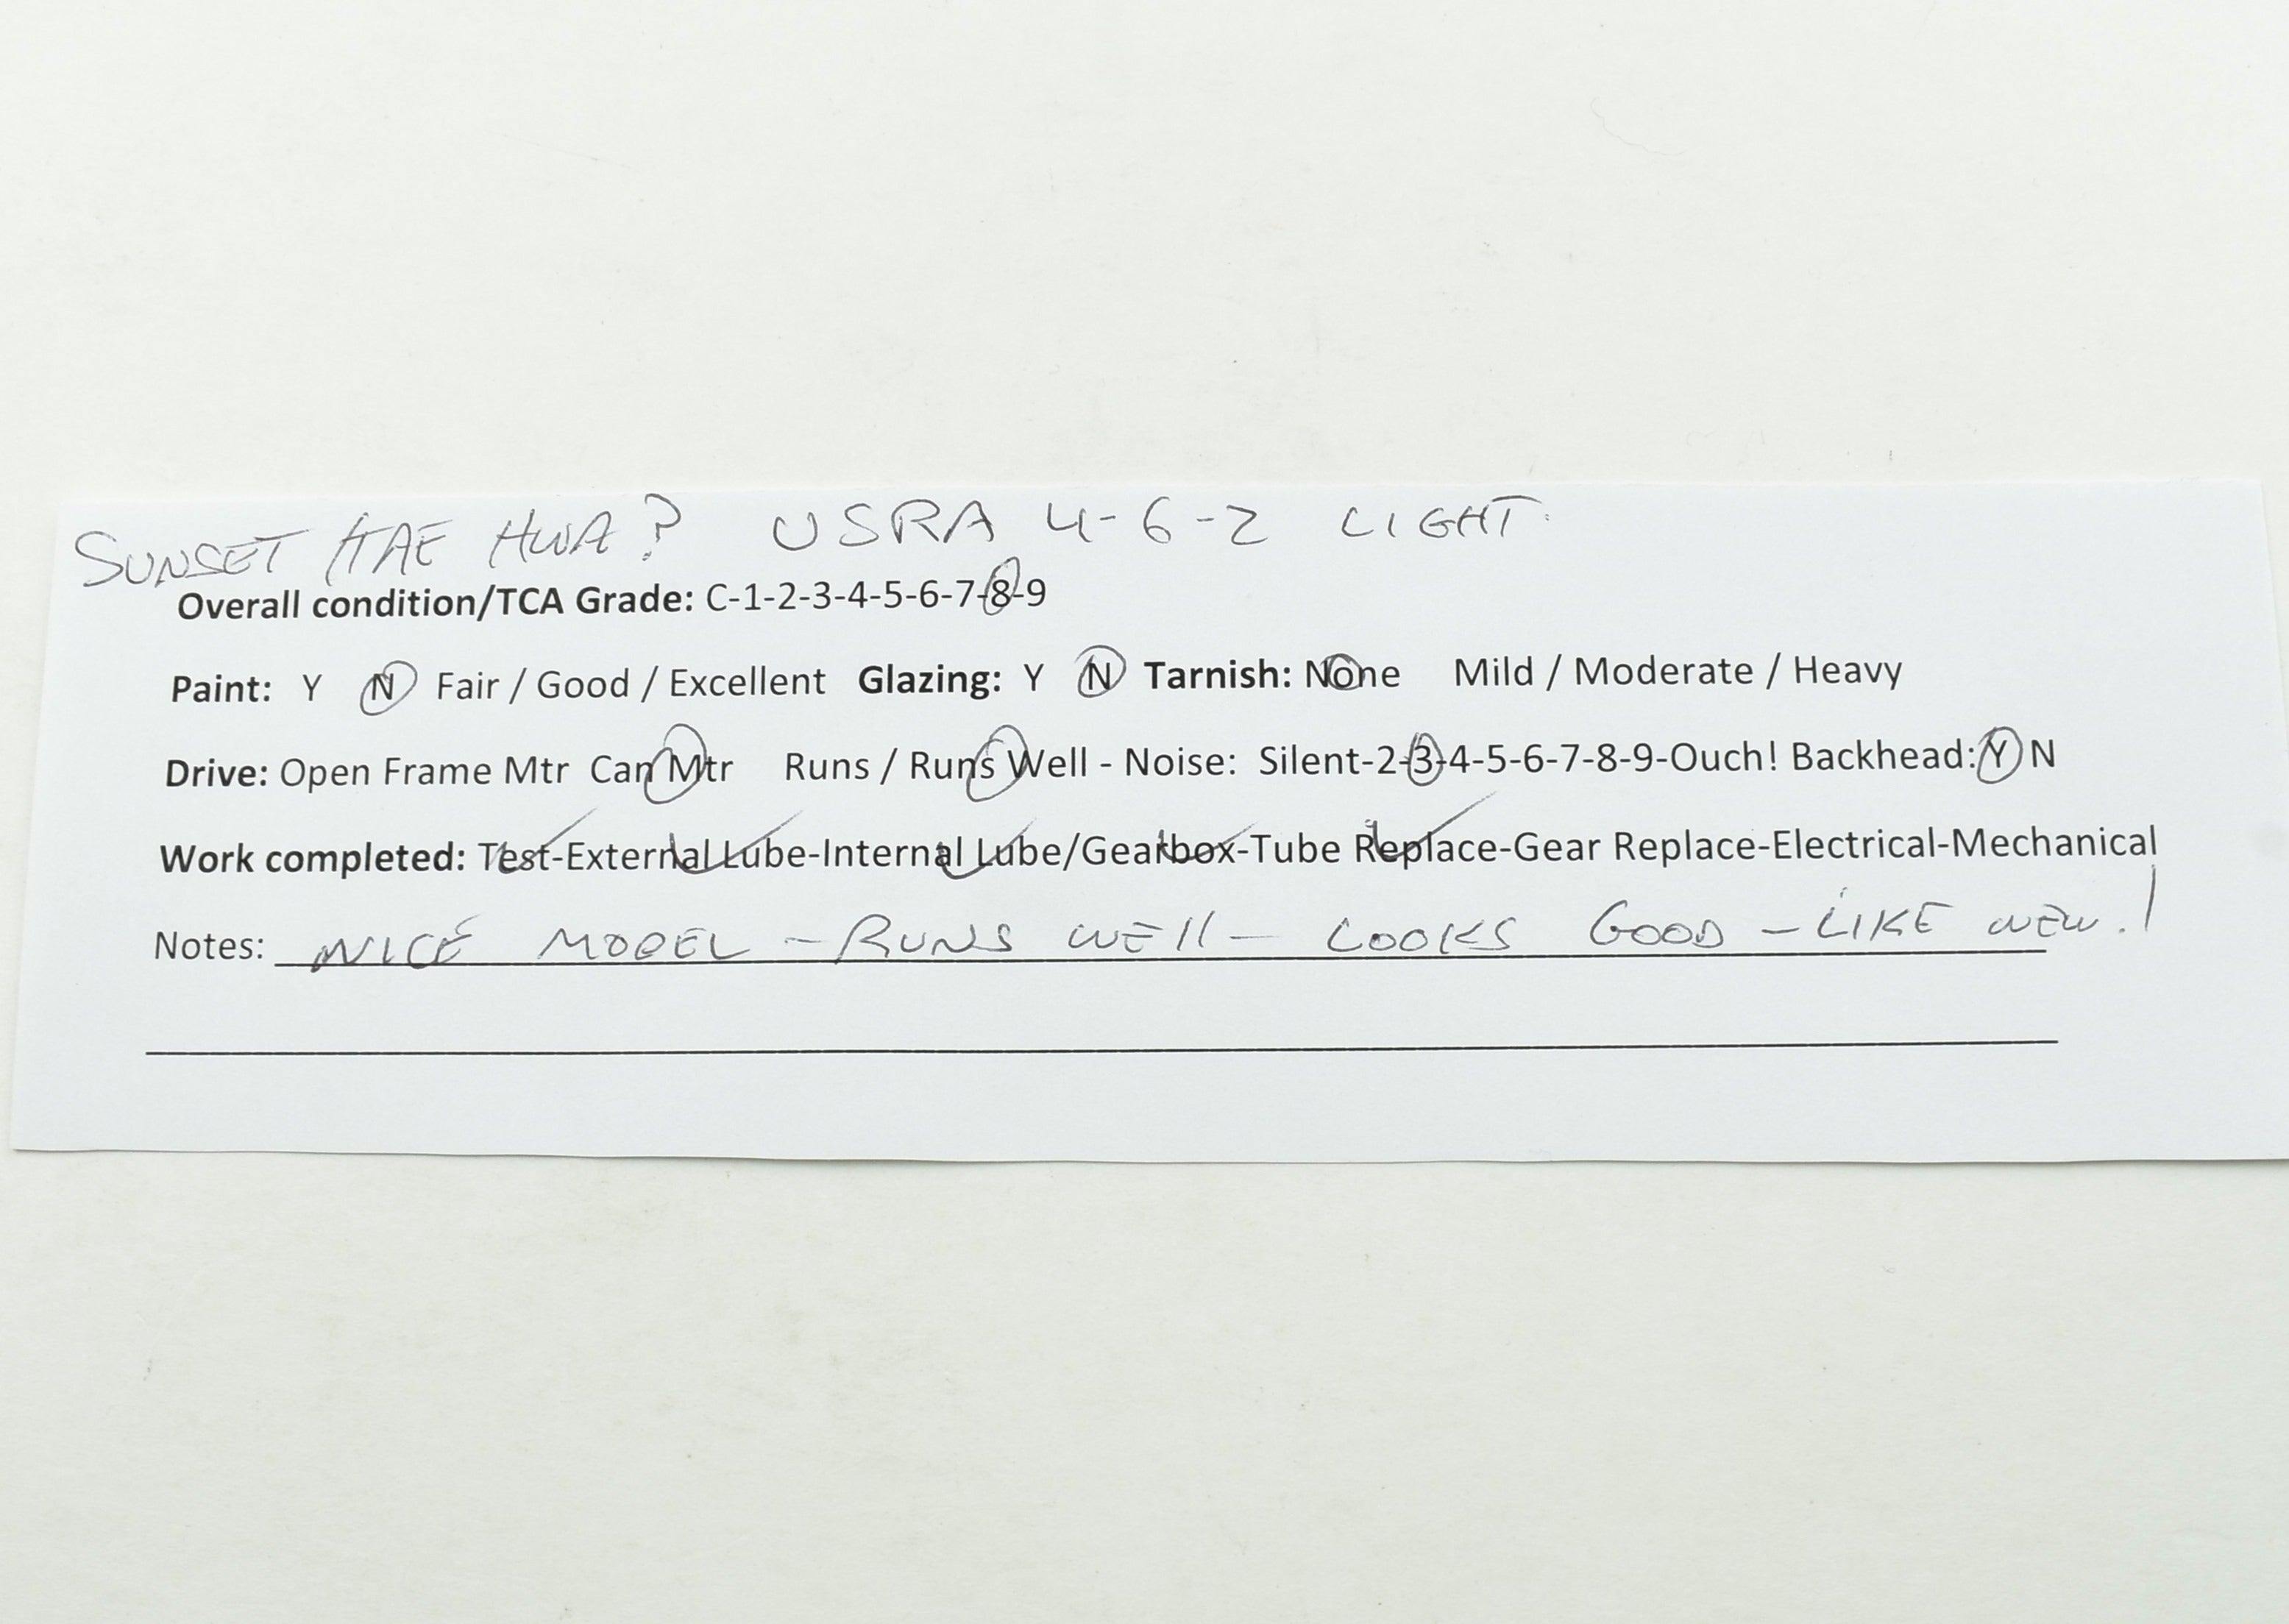 SUNSET HAE HWA? USRA 4-6-2 LIGHT
Overall condition/TCA Grade: C-1-2-3-4-5-6-7-8-9
Paint: Y N Fair / Good / Excellent Glazing: Y N Tarnish: None Mild / Moderate / Heavy
Drive: Open Frame Mtr Can Mtr Runs / Runs Well - Noise: Silent-2-3-4-5-6-7-8-9-Ouch! Backhead: Y N
Work completed: Test-External Lube-Internal Lube/Gearbox-Tube Replace-Gear Replace-Electrical-Mechanical
Notes: NICE MODEL - RUNS WEll - LOOKS GOOD - LIKE NEW.!